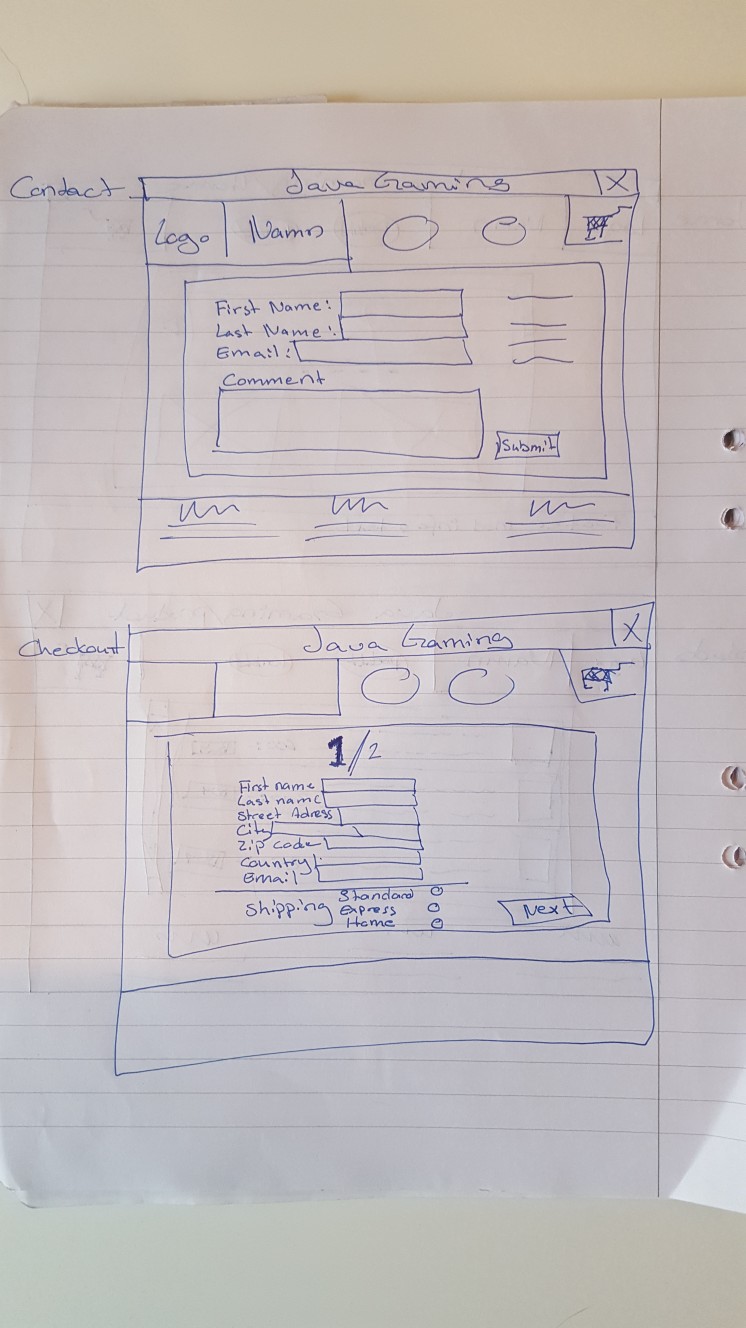 Contact
Java Gaming X
Logo Namn
First Name:
Last Name:
Email:
Comment
Submit
Checkout
Java Gaming X
1/2
First name
Last name
Street Adress
City
Zip code
Country:
Email
Shipping Standard
Express
Home
Next